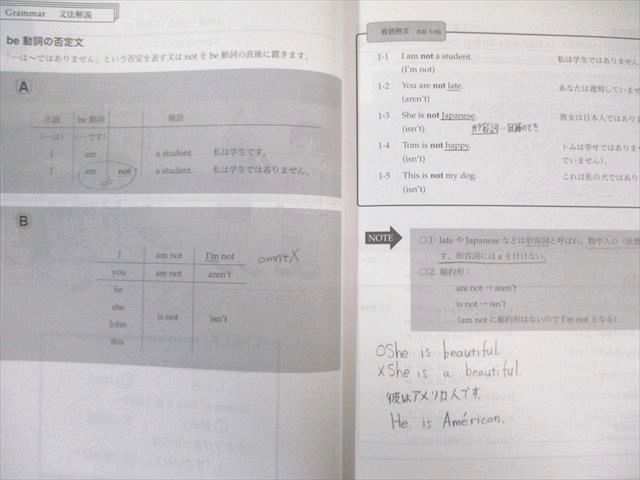 Grammar 文法解説
be 動詞の否定文
「…は〜ではありません」という否定を表す文は not を be 動詞の直後に置きます。
A
主語 be 動詞 補語
(…は) (…です)
I am a student. 私は学生です。
I am not a student. 私は学生ではありません。
B
I am not I'm not amn't X
you are not aren't
he
she
John is not isn't
this
CHECK!
音読例文 (CD: 1-18)
1-1 I am not a student. 私は学生ではありません
(I'm not)
1-2 You are not late. あなたは遅刻していませ
(aren't)
1-3 She is not Japanese. 彼女は日本人ではありま
(isn't) 形容詞…国籍のとき
1-4 Tom is not happy. トムは幸せではありませ
(isn't) でいません)。
1-5 This is not my dog. これは私の犬ではあり
(isn't)
NOTE
□① late や Japanese などは形容詞と呼ばれ、物や人の〔状態
す。形容詞には a を付けない。
□② 縮約形：
are not → aren't
is not → isn't
(am not に縮約形はないので I'm not となる)
○She is beautiful.
×She is a beautiful.
彼はアメリカ人です。
He is Américan.